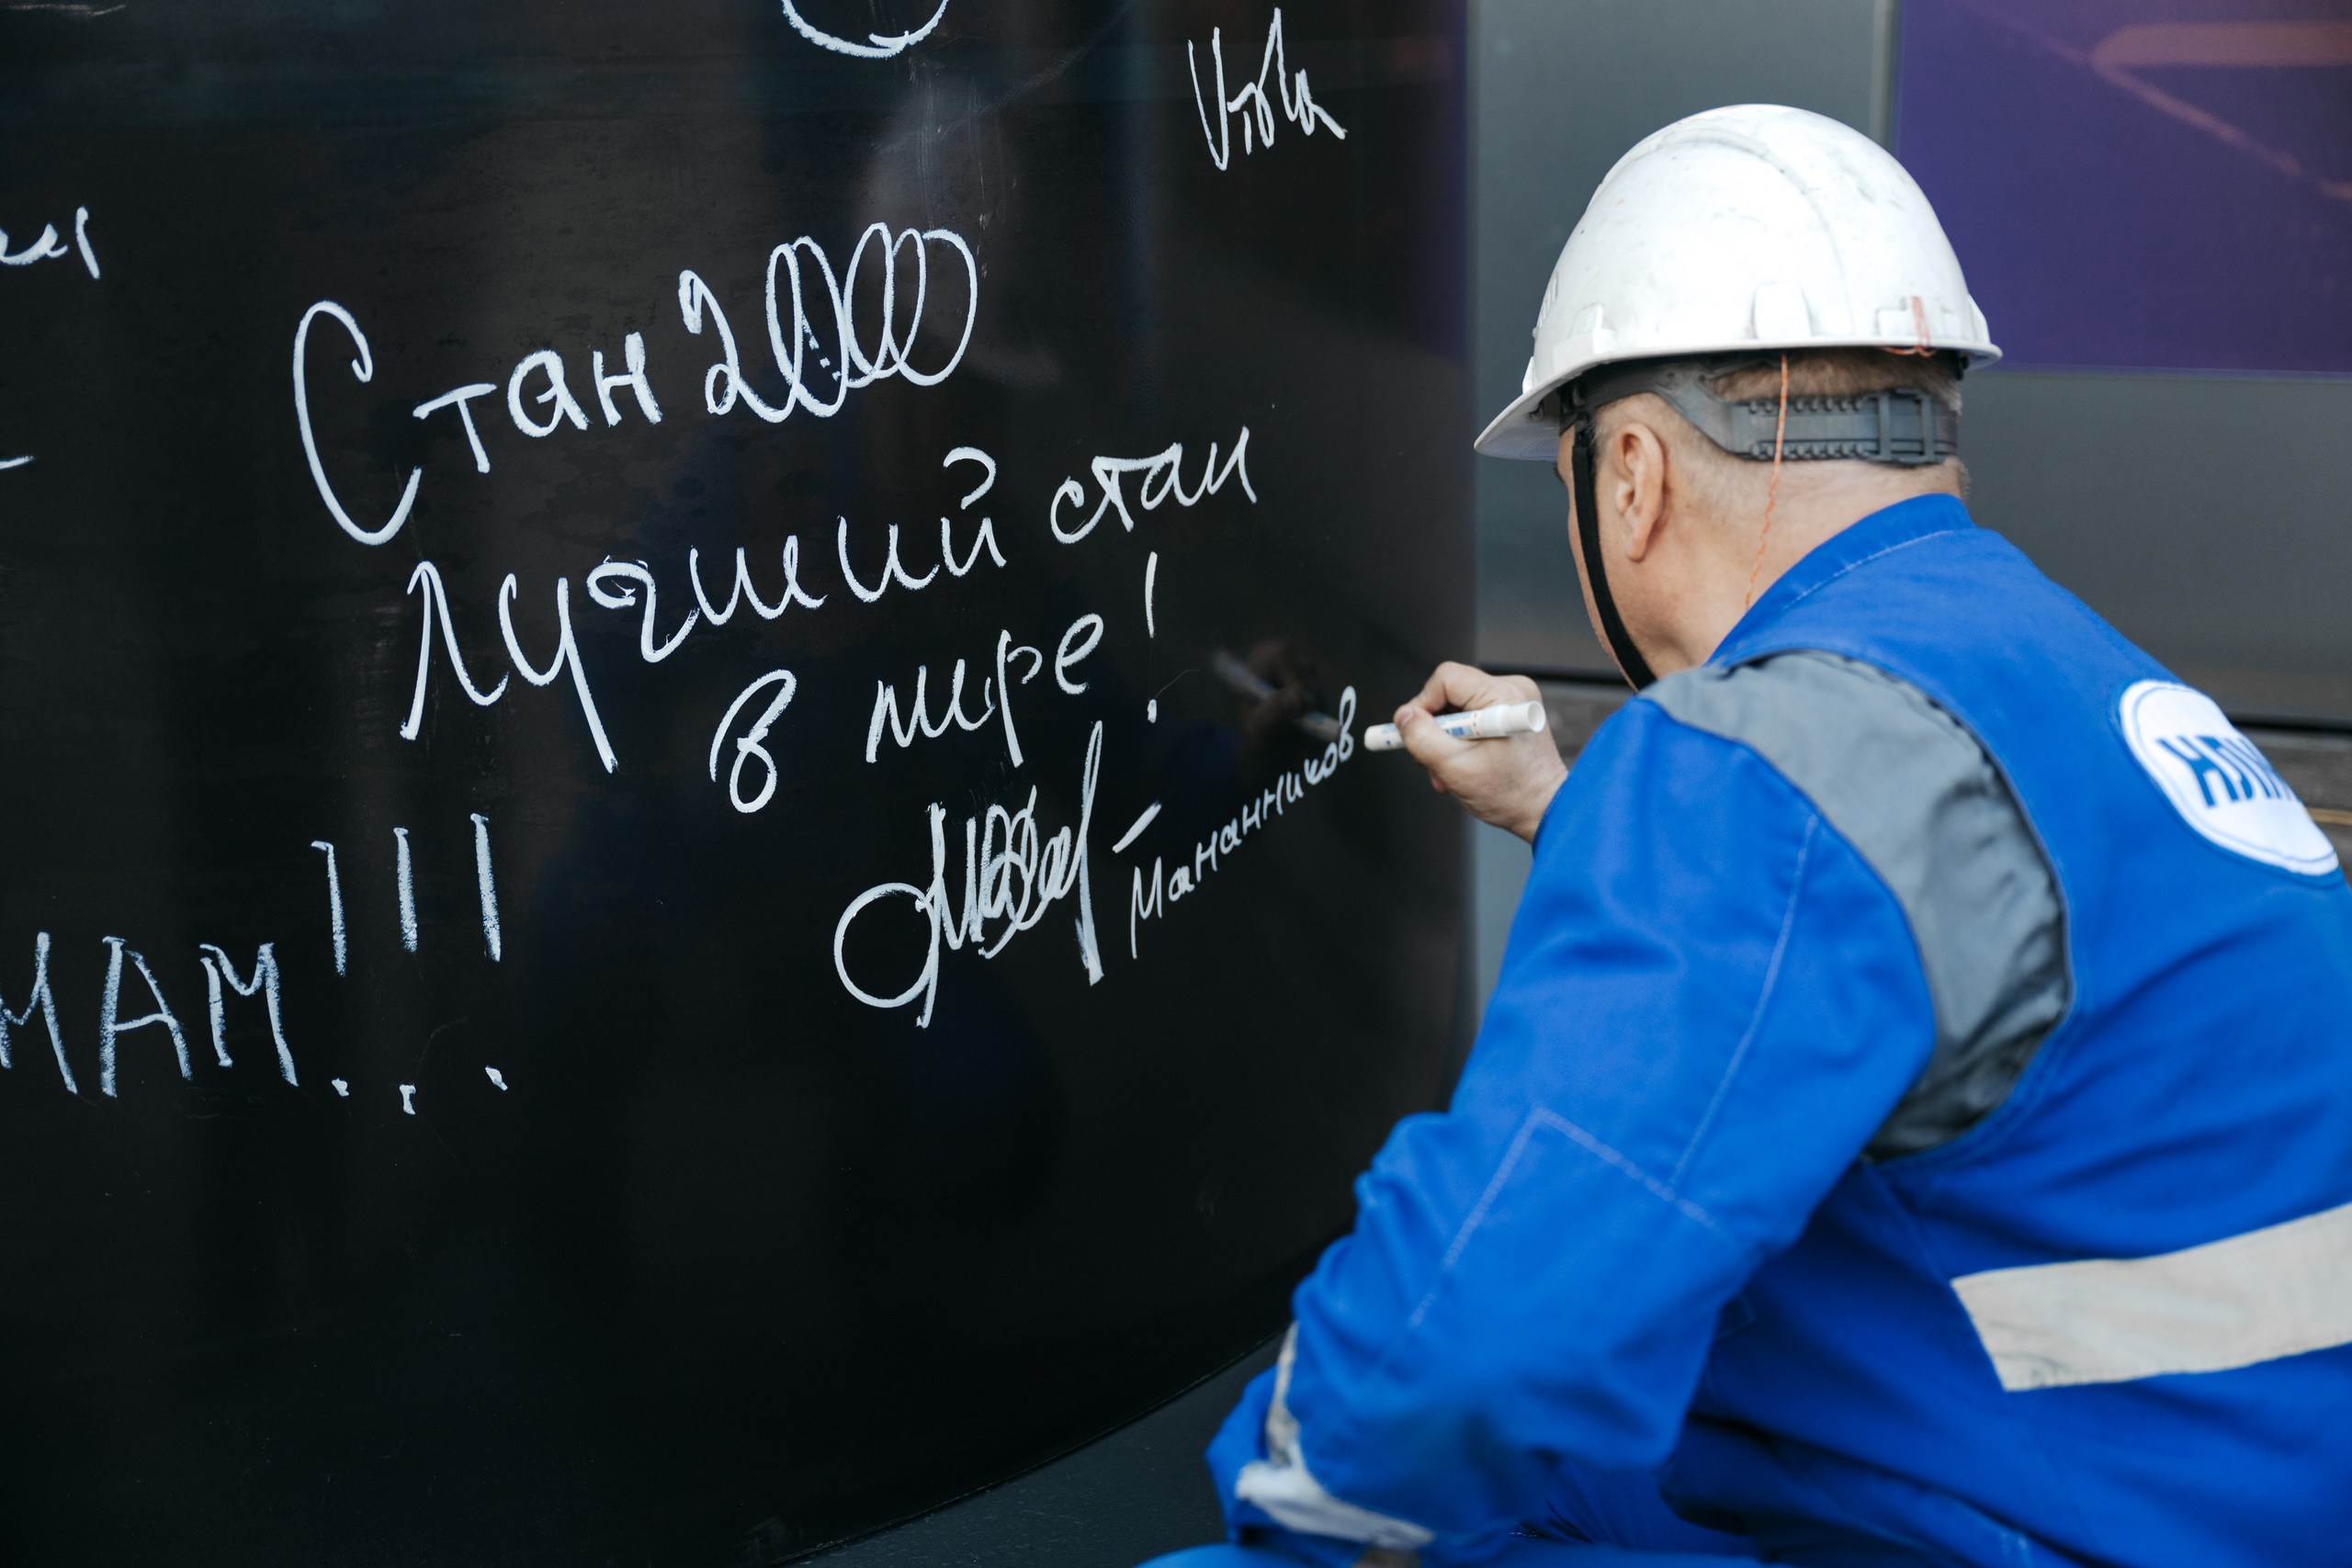 Стан 2000
Лучший стан
в мире!
- Мананников
МАМ!!!
НЛМ